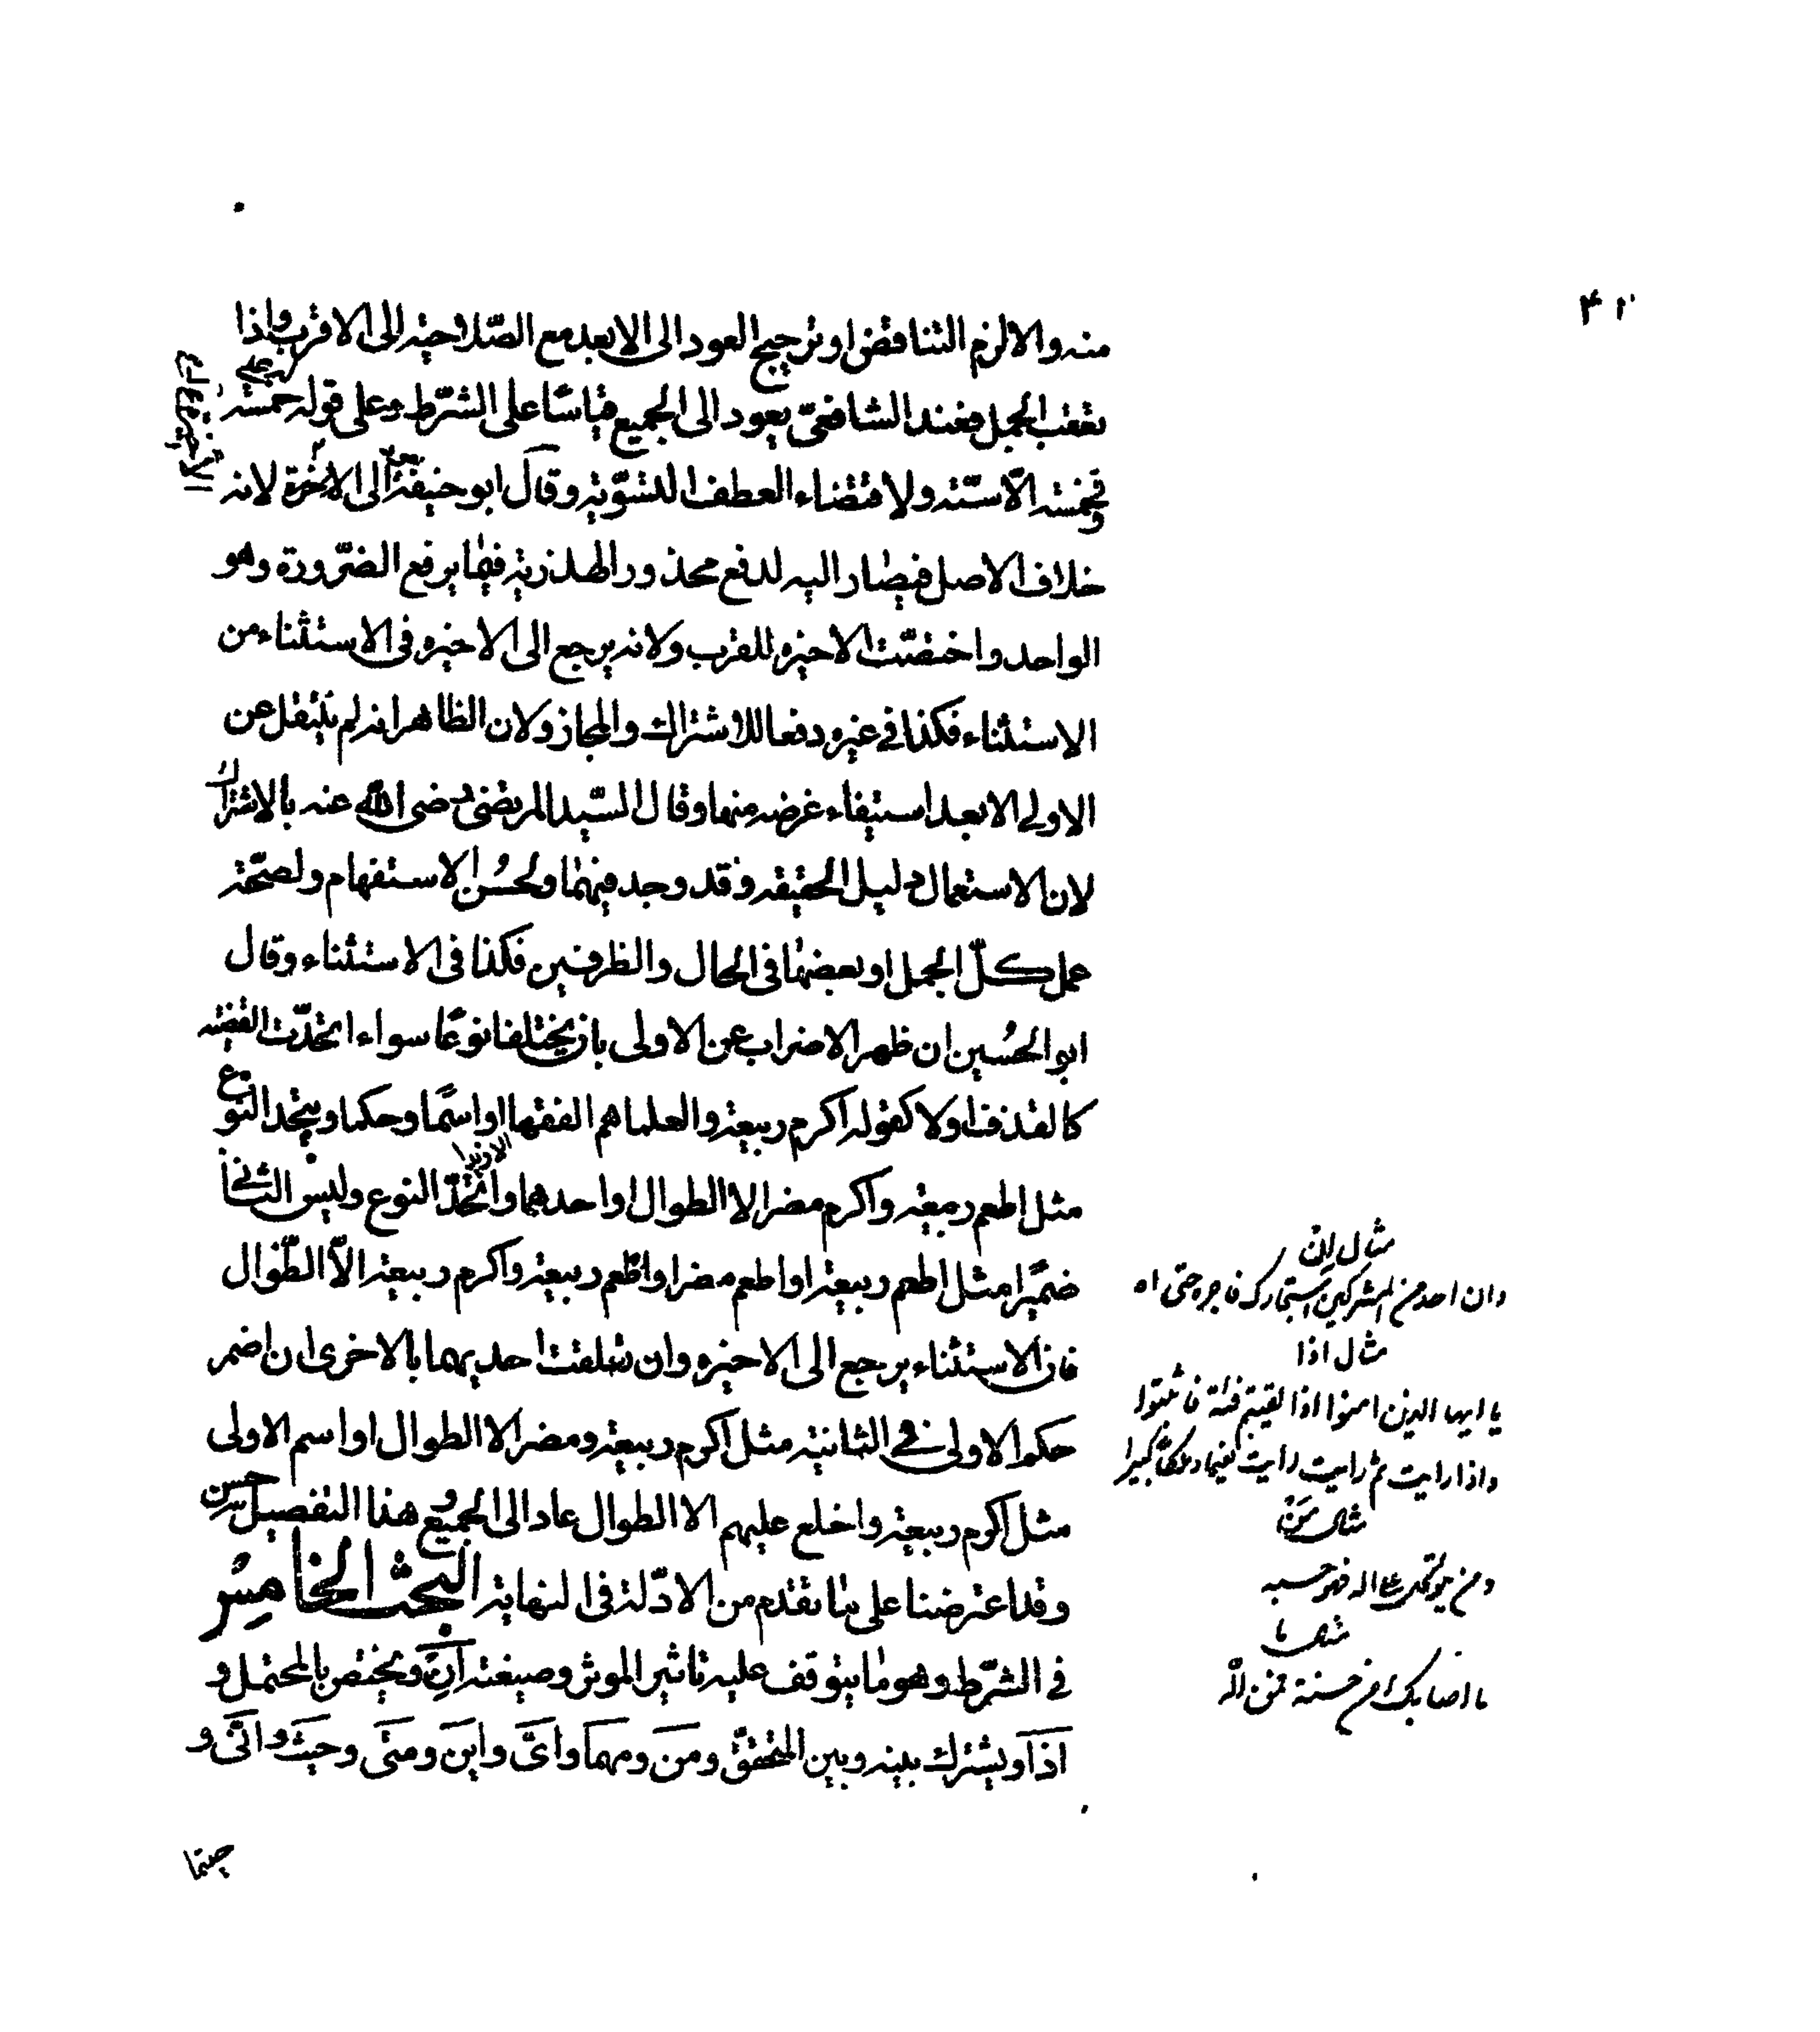 ٤١
منه والا لزم التناقض او ترجيح العود الى الابعد مع الصّلاحيّة الى الاقرب واذا
تعقب الجمل فعند الشافعىّ يعود الى الجميع قياسًا على الشّرط وعلى قوله له علي خمسة
وخمسة الّا ستّة ولاقتضاء العطف التسّوية وقال ابو حنيفة يعود الى الاخيرة لانه
خلاف الاصل فيصار اليه لدفع محذور الهذرية فيما يرفع الضّرورة وهو
الواحد واختصّت الاخيرة للقرب ولانه يرجع الى الاخيرة فى الاستثناء من
الاستثناء فكذا في غيره دفعا للاشتراك والمجاز ولان الظاهر انه لم ينتقل عن
الاولى الا بعد استيفاء غرضه منها وقال السّيد المرتضى رضى الله عنه بالاشتراك
لان الاستعمال دليل الحقيقة وقد وجد فيهما ولحُسن الاستفهام ولصحّة
عمل كلّ الجمل او بعضها فى الحال والظرفين فكذا فى الاستثناء وقال
ابو الحُسين ان ظهر الاضراب عن الاولى بان يختلفا نوعًا سواء اتحدّت القضية
كالقذف اولا كقوله اكرم ربيعة والعلما هم الفقها او اسمًا وحكما ويتحد النوع
مثل اطعم ربيعة واكرم مضر الا الطوال او احدهما واتحدّ النوع وليس الثاني
ضميرًا مثل اطعم ربيعة او اطعم مضر او اطعم ربيعة واكرم ربيعة الاّ الطّوال
فان الاستثناء يرجع الى الاخيرة وان تعلقت احديهما بالاخرى ان اضمر
حكم الاولى في الثانية مثل اكرم ربيعة ومضر الا الطوال او اسم الاولى
مثل اكرم ربيعة واخلع عليهم الا الطوال عاد الى الجميع وهذا التفصيل حسن
وقد اعترضنا على ما تقدم من الادّلة فى النهاية البحث الخامس
في الشّرط وهو ما يتوقف عليه تاثير الموثر وصيغته انِ ويختص بالمحتمل و
اذا ويشترك بينه وبين المتحقق ومن ومهما واىّ واين ومتى وحيث وانّى و
حيثما
مثال اِن
وان احد من المشركين استجارك فاجره حتى اه
مثال اذا
يا ايها الذين امنوا اذا لقيتم فئة فاثبتوا
واذا رايت ثم رايت نعيما وملكا كبيرا
مثال مَن
ومن يتوكل على الله فهو حسبه
مثال ما
ما اصابك من حسنة فمن الله